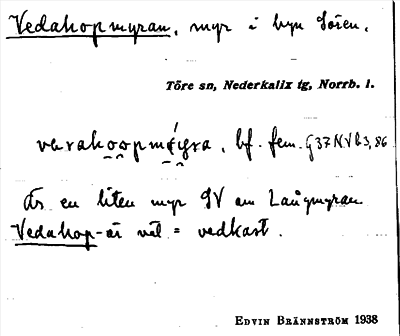 Vedahopmyran, myr i byn Sören.
Töre sn, Nederkalix tg, Norrb. l.
bf. fem. G37NVB3,86
Är en liten myr SV om Långmyran
Vedahop- är väl = vedkast.
EDVIN BRÄNNSTRÖM 1938